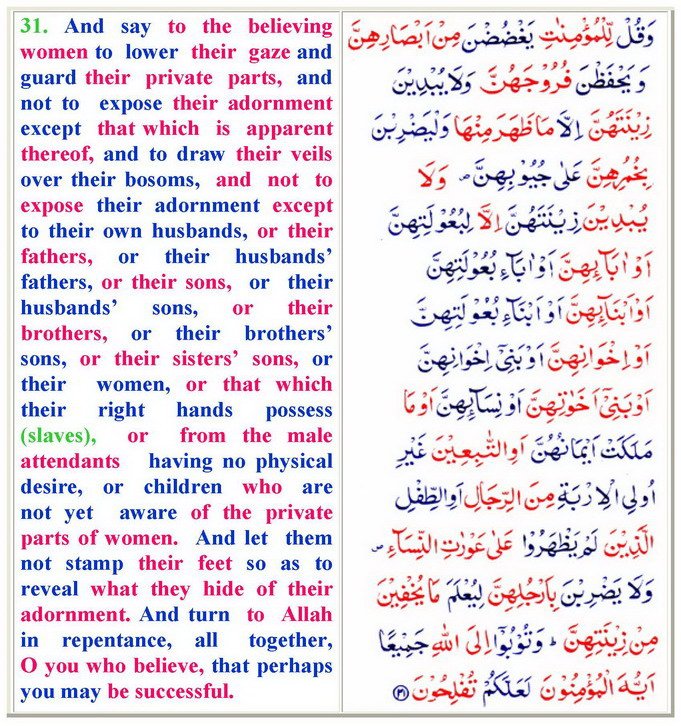 31. And say to the believing
women to lower their gaze and
guard their private parts, and
not to expose their adornment
except that which is apparent
thereof, and to draw their veils
over their bosoms, and not to
expose their adornment except
to their own husbands, or their
fathers, or their husbands’
fathers, or their sons, or their
husbands’ sons, or their
brothers, or their brothers’
sons, or their sisters’ sons, or
their women, or that which
their right hands possess
(slaves), or from the male
attendants having no physical
desire, or children who are
not yet aware of the private
parts of women. And let them
not stamp their feet so as to
reveal what they hide of their
adornment. And turn to Allah
in repentance, all together,
O you who believe, that perhaps
you may be successful.
وَقُلْ لِّلْمُؤْمِنٰتِ يَغْضُضْنَ مِنْ اَبْصَارِهِنَّ
وَيَحْفَظْنَ فُرُوْجَهُنَّ وَلَا يُبْدِيْنَ
زِيْنَتَهُنَّ اِلَّا مَا ظَهَرَ مِنْهَا وَلْيَضْرِبْنَ
بِخُمُرِهِنَّ عَلٰى جُيُوْبِهِنَّ ۖ وَلَا
يُبْدِيْنَ زِيْنَتَهُنَّ اِلَّا لِبُعُوْلَتِهِنَّ
اَوْ اٰبَآىِٕهِنَّ اَوْ اٰبَآءِ بُعُوْلَتِهِنَّ
اَوْ اَبْنَآىِٕهِنَّ اَوْ اَبْنَآءِ بُعُوْلَتِهِنَّ
اَوْ اِخْوَانِهِنَّ اَوْ بَنِيْۤ اِخْوَانِهِنَّ
اَوْ بَنِيْۤ اَخَوٰتِهِنَّ اَوْ نِسَآىِٕهِنَّ اَوْ مَا
مَلَكَتْ اَيْمَانُهُنَّ اَوِ التّٰبِعِيْنَ غَيْرِ
اُولِي الْاِرْبَةِ مِنَ الرِّجَالِ اَوِ الطِّفْلِ
الَّذِيْنَ لَمْ يَظْهَرُوْا عَلٰى عَوْرٰتِ النِّسَآءِ ۖ
وَلَا يَضْرِبْنَ بِاَرْجُلِهِنَّ لِيُعْلَمَ مَا يُخْفِيْنَ
مِنْ زِيْنَتِهِنَّ ؕ وَتُوْبُوْۤا اِلَى اللّٰهِ جَمِيْعًا
اَيُّهَ الْمُؤْمِنُوْنَ لَعَلَّكُمْ تُفْلِحُوْنَ ﴿۳۱﴾